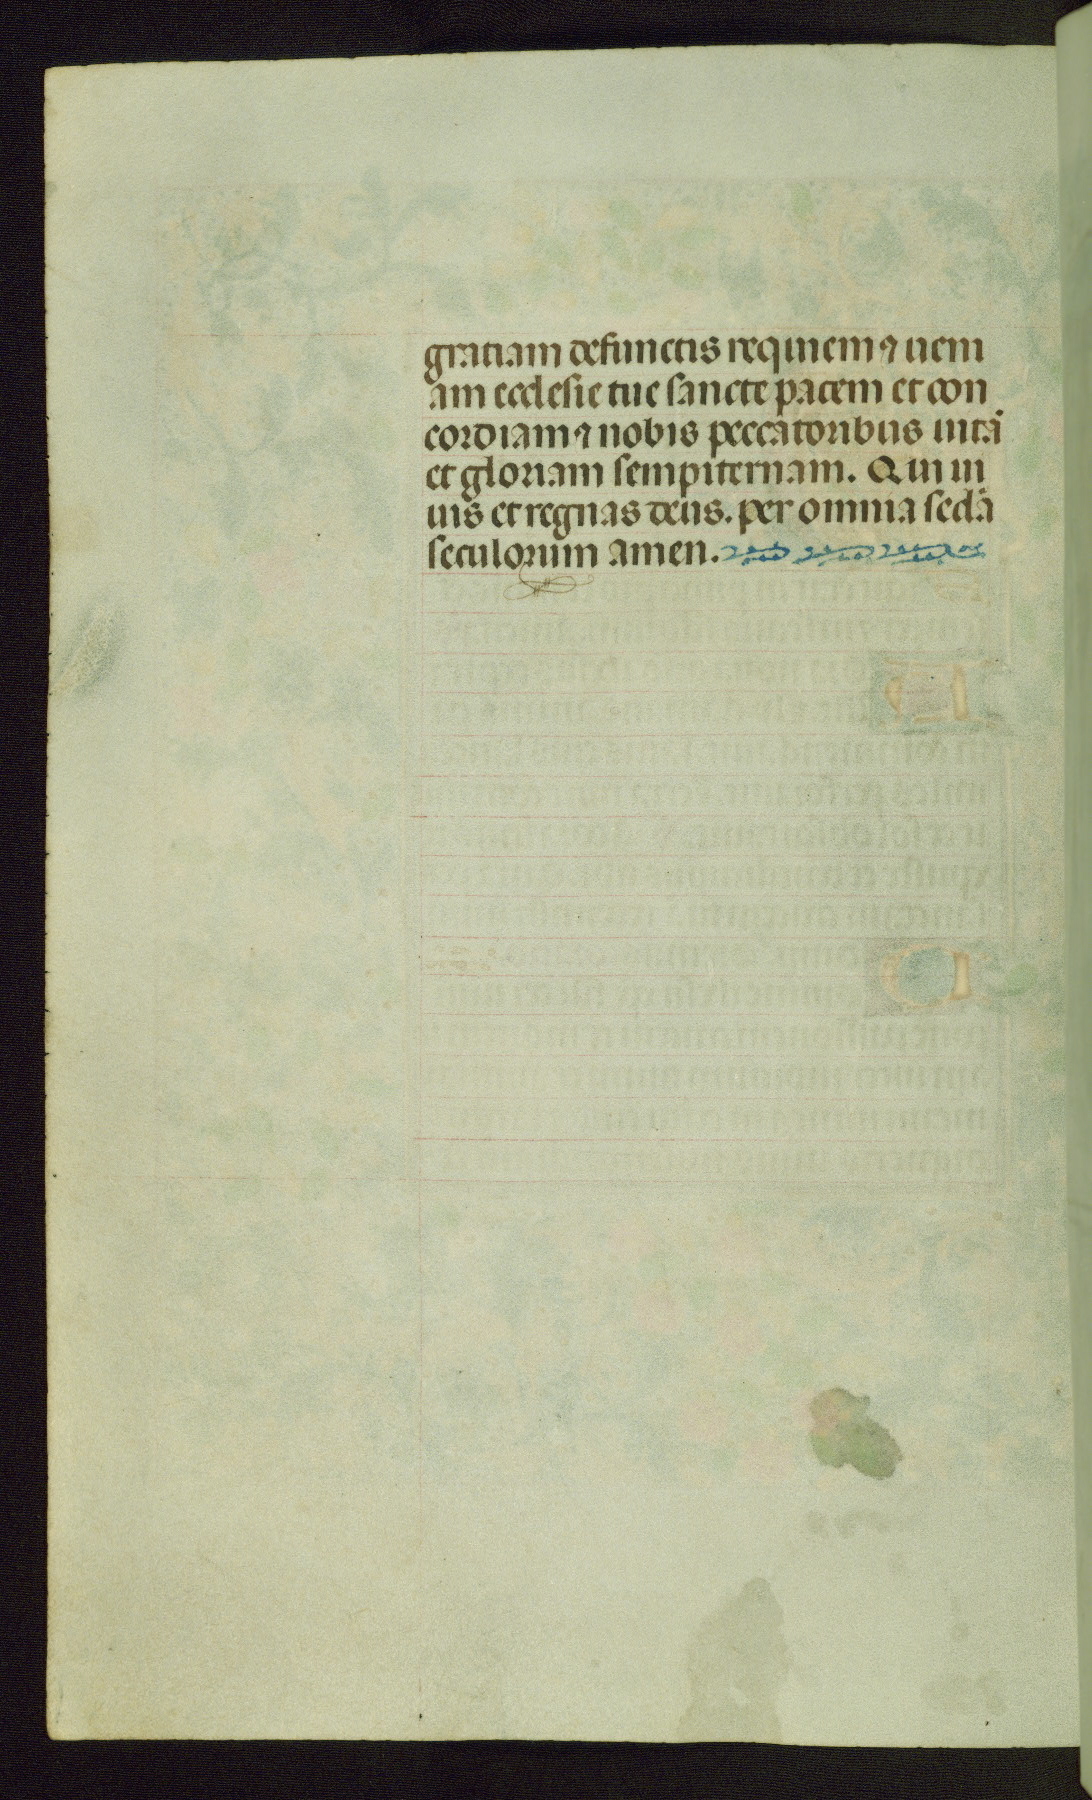 gratiam defunctis requiem ⁊ ueni
am ecclesie tue sancte pacem et con
cordiam ⁊ nobis peccatoribus uitā
et gloriam sempiternam. Qui ui
uis et regnas deus. per omnia seclā
seculorum amen.